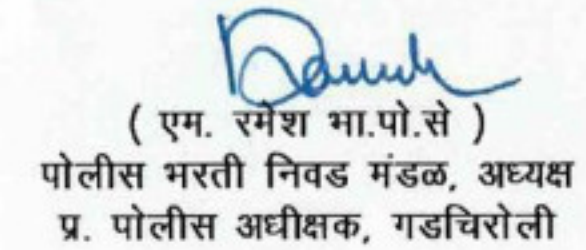 ( एम. रमेश भा.पो.से )
पोलीस भरती निवड मंडळ, अध्यक्ष
प्र. पोलीस अधीक्षक, गडचिरोली